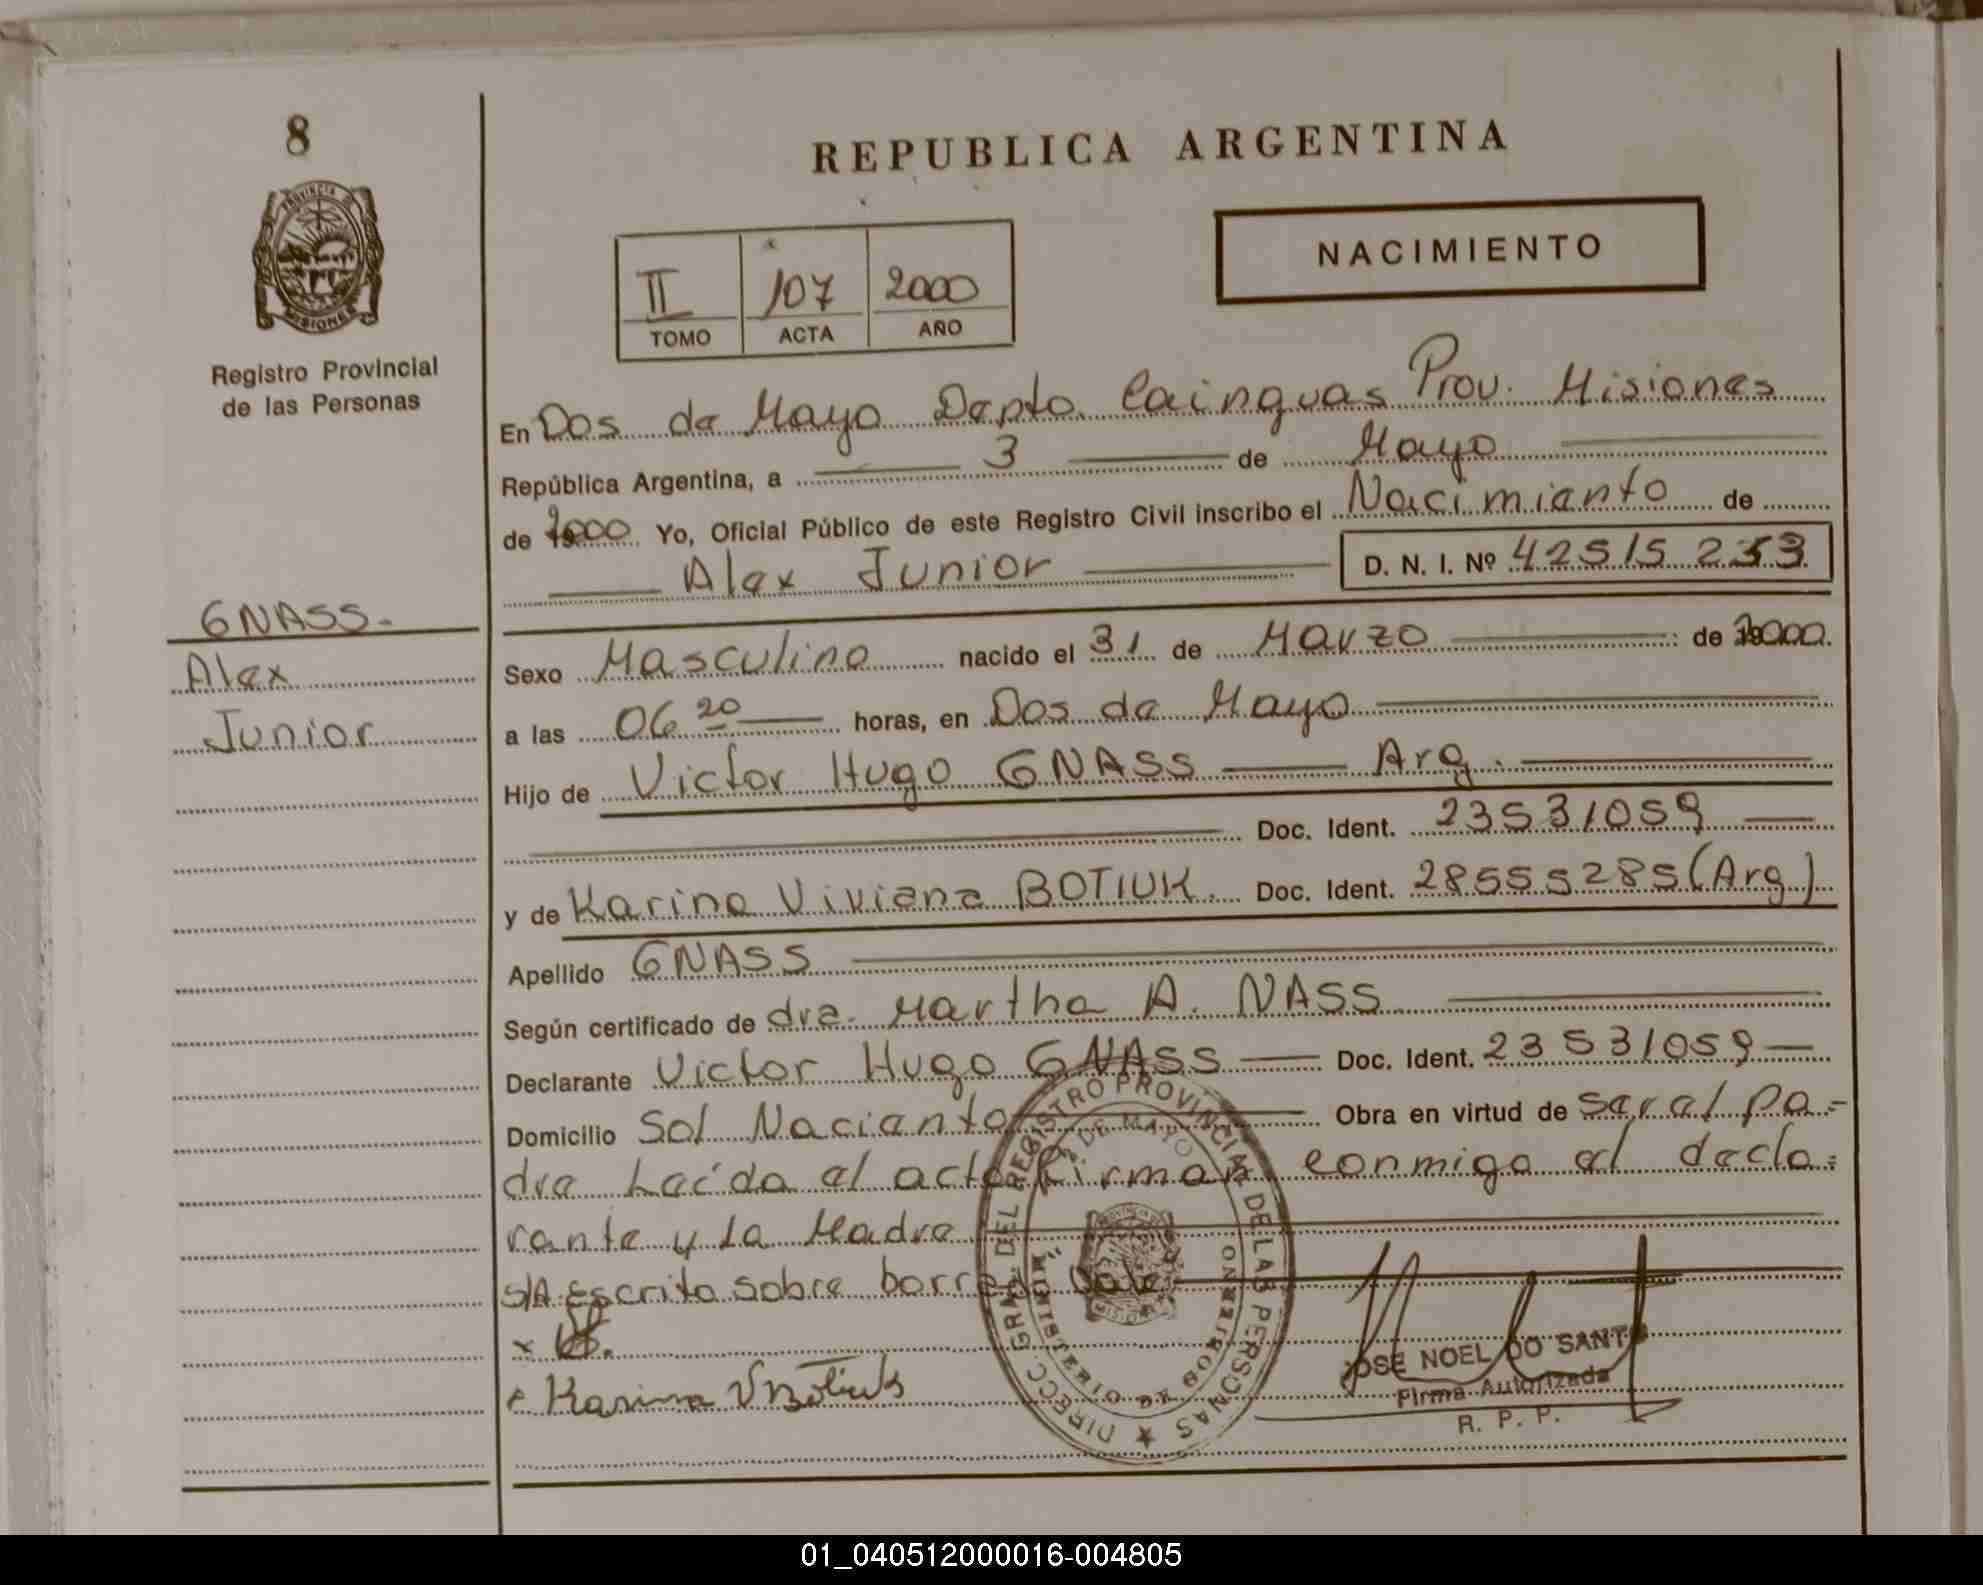 8
PROVINCIA DE
MISIONES
Registro Provincial
de las Personas
GNASS.
Alex
Junior
REPUBLICA ARGENTINA
II 107 2000
TOMO ACTA AÑO
NACIMIENTO
En Dos de Mayo Depto. Cainguas Prov. Misiones
República Argentina, a 3 de Mayo
de 2000 Yo, Oficial Público de este Registro Civil inscribo el Nacimiento de
Alex Junior D. N. I. Nº 42515233
Sexo Masculino nacido el 31 de Marzo de 2000.
a las 06 20 horas, en Dos de Mayo
Hijo de Victor Hugo GNASS Arg.
Doc. Ident. 23531059
y de Karina Viviana BOTIUK. Doc. Ident. 28555285 (Arg)
Apellido GNASS
Según certificado de dra. Martha A. NASS
Declarante Victor Hugo GNASS Doc. Ident. 23531059
Domicilio Sol Naciente Obra en virtud de ser el pa-
dre Leída el acta firman conmigo el decla-
rante y la Madre
S/A Escrito sobre borrado Vale
Karina V Botiuk
DIRECC. GRAL. DEL REGISTRO PROVINCIAL DE LAS PERSONAS
2 DE MAYO
MINISTERIO DE GOBIERNO
MISIONES
JOSE NOEL DO SANTO
Firma Autorizada
R. P. P.
01_040512000016-004805